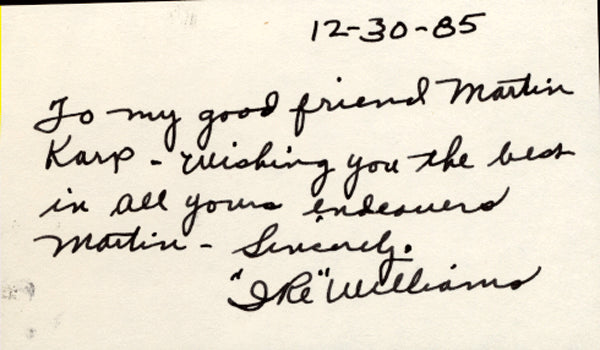 12-30-85
To my good friend Martin
Karp - wishing you the best
in all yours endeavers
Martin - Sincerely.
"Ike" Williams